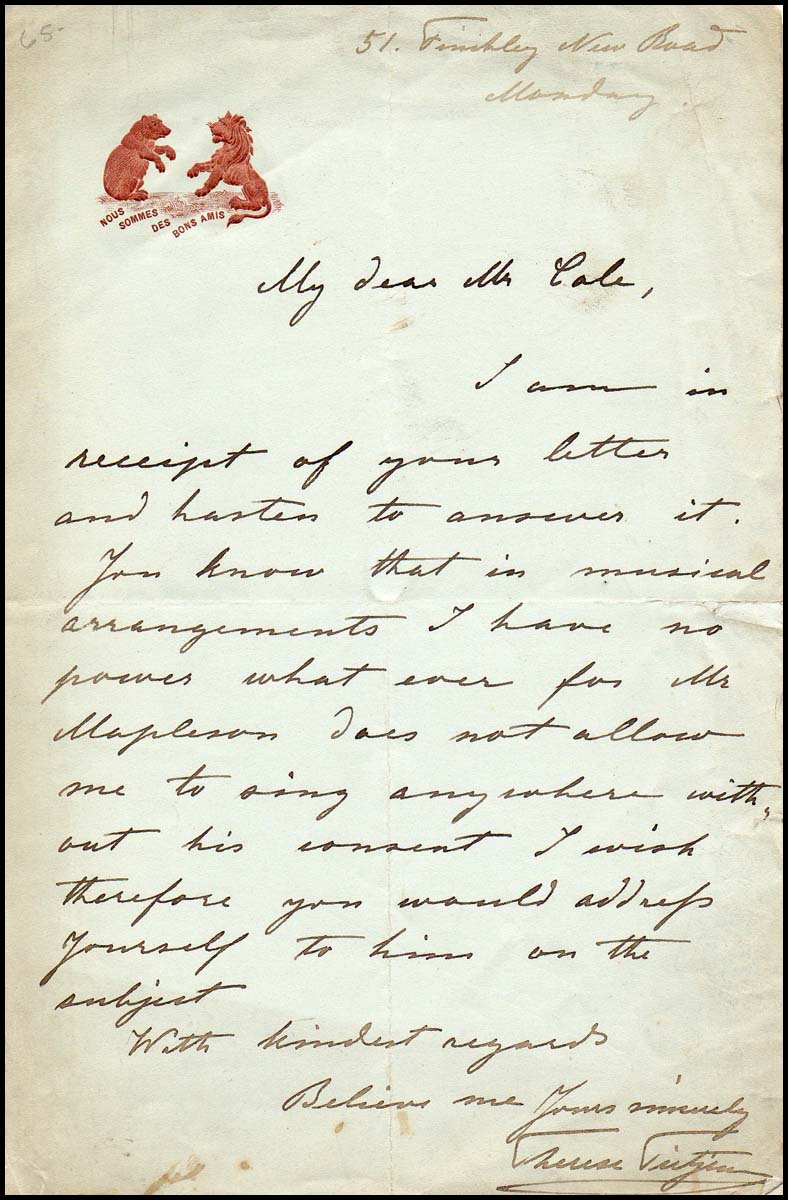 65
51. Finchley New Road
Monday.
NOUS SOMMES DES BONS AMIS
My dear Mr Cole,
I am in
receipt of your letter
and hasten to answer it.
You know that in musical
arrangements I have no
power what ever for Mr
Mapleson does not allow
me to sing anywhere with,
out his consent I wish
therefore you would addreſs
Yourself to him on the
subject
With kindest regards
Believe me Yours sincerely
Therese Tietjens